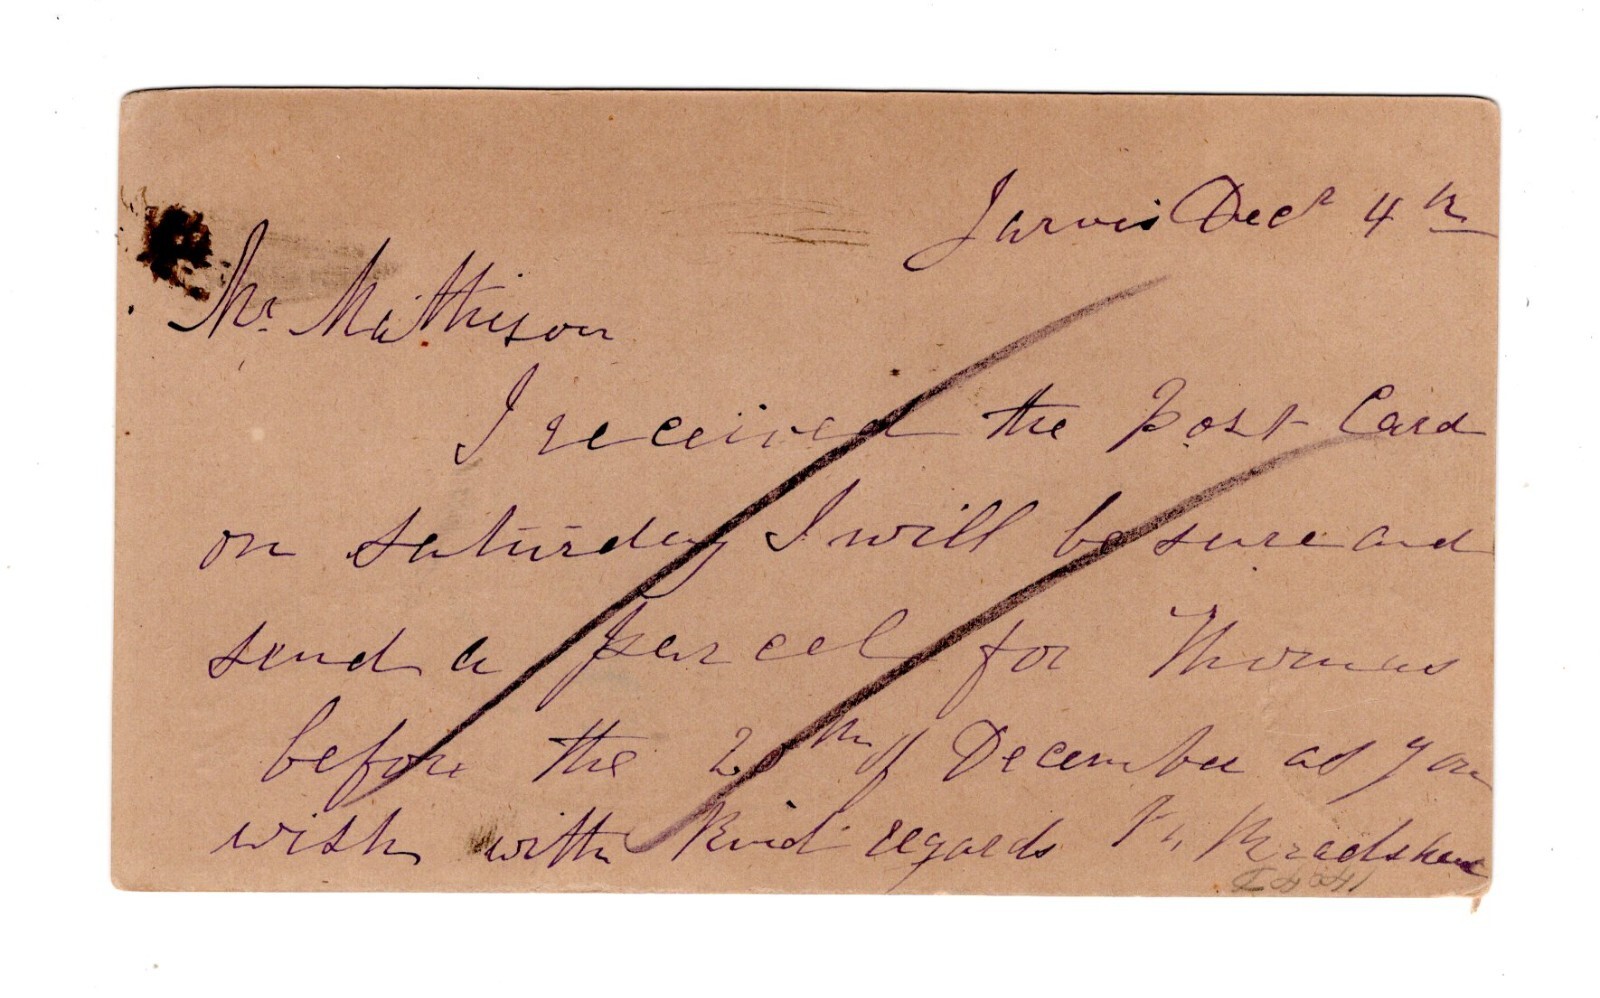 Jarvis Decr 4th
Mr. Mathison
I received the post Card
on saturday I will be sure and
send a parcel for Thomas
before the 20th of December as you
wish with kind regards Bradshaw